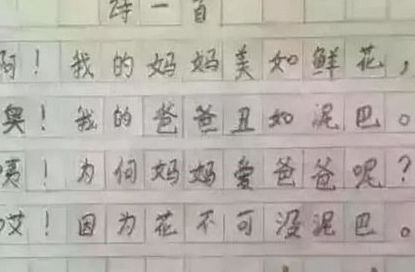 诗一首
啊！我的妈妈美如鲜花，
奥！我的爸爸丑如泥巴。
咦！为何妈妈爱爸爸呢？
哎！因为花不可没泥巴。